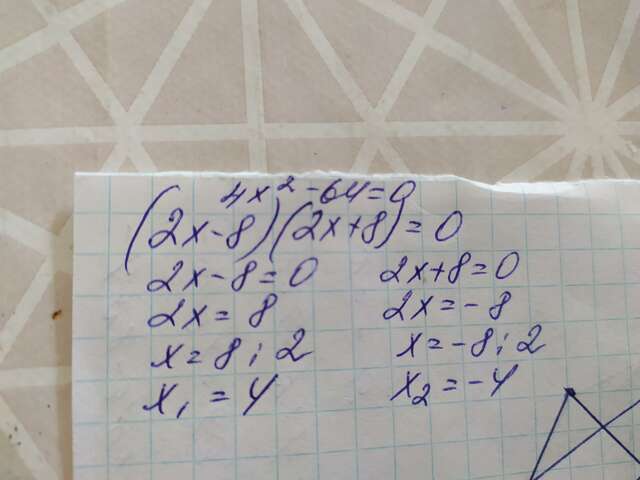 4x² - 64 = 0
(2x - 8)(2x + 8) = 0
2x - 8 = 0 2x + 8 = 0
2x = 8 2x = -8
x = 8 : 2 x = -8 : 2
x₁ = 4 x₂ = -4